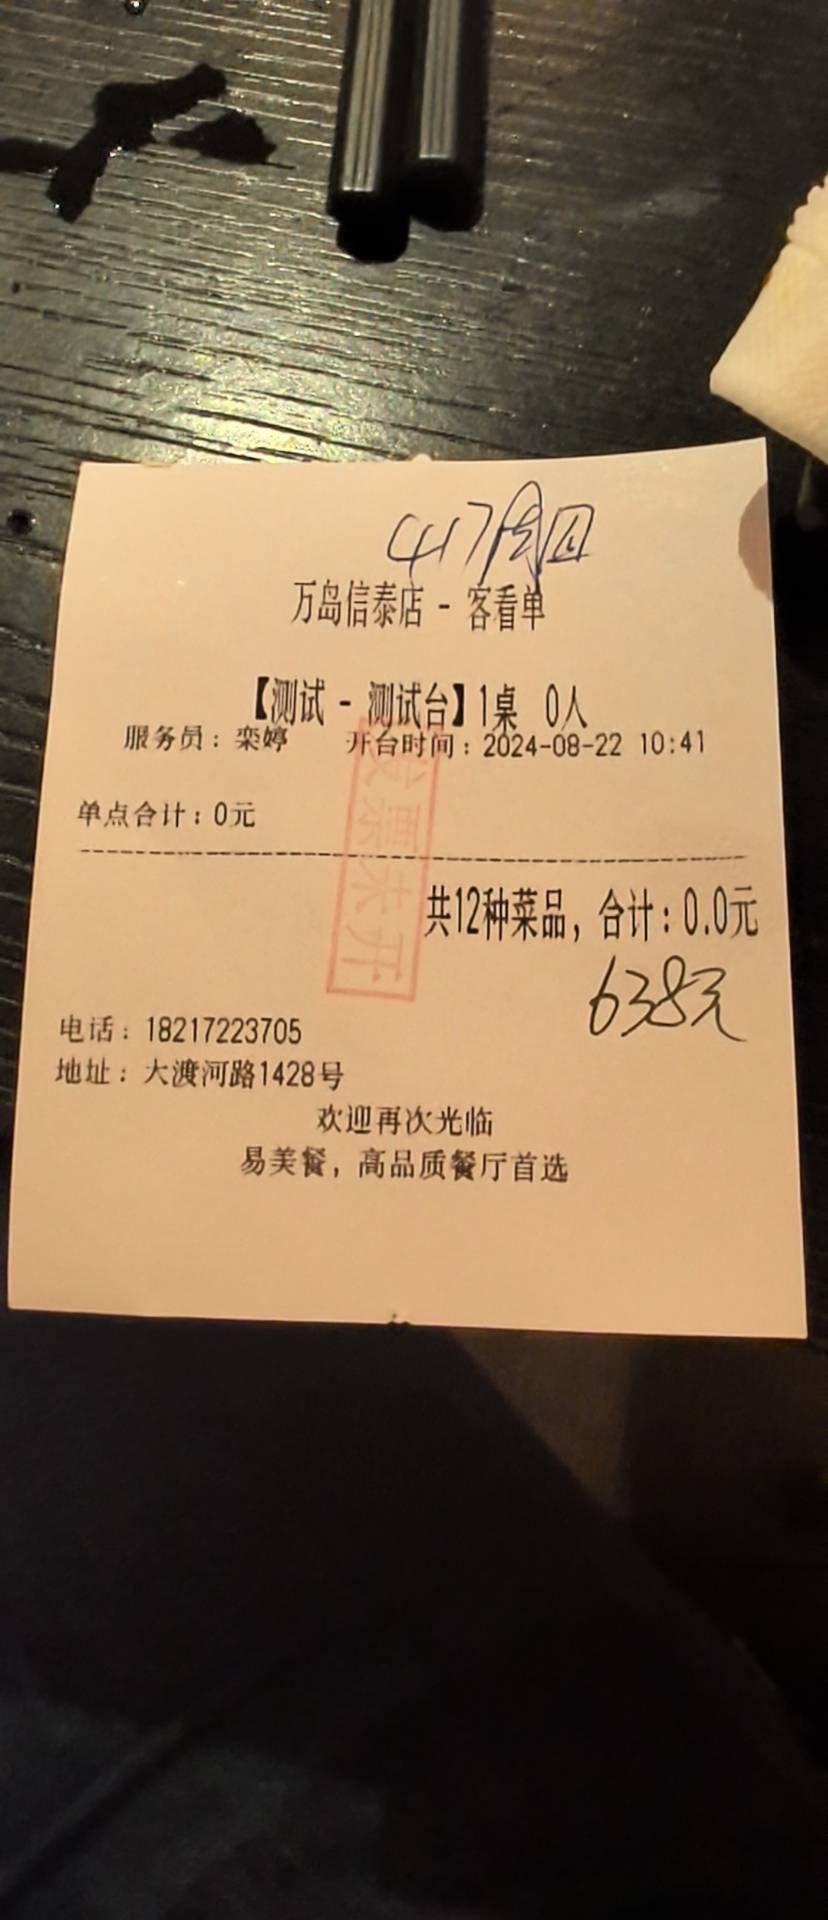 417周四
万岛信泰店 - 客看单
【测试 - 测试台】1桌 0人
服务员：栾婷 开台时间：2024-08-22 10:41
单点合计：0元
发票未开
共12种菜品，合计：0.0元
638元
电话：18217223705
地址：大渡河路1428号
欢迎再次光临
易美餐，高品质餐厅首选